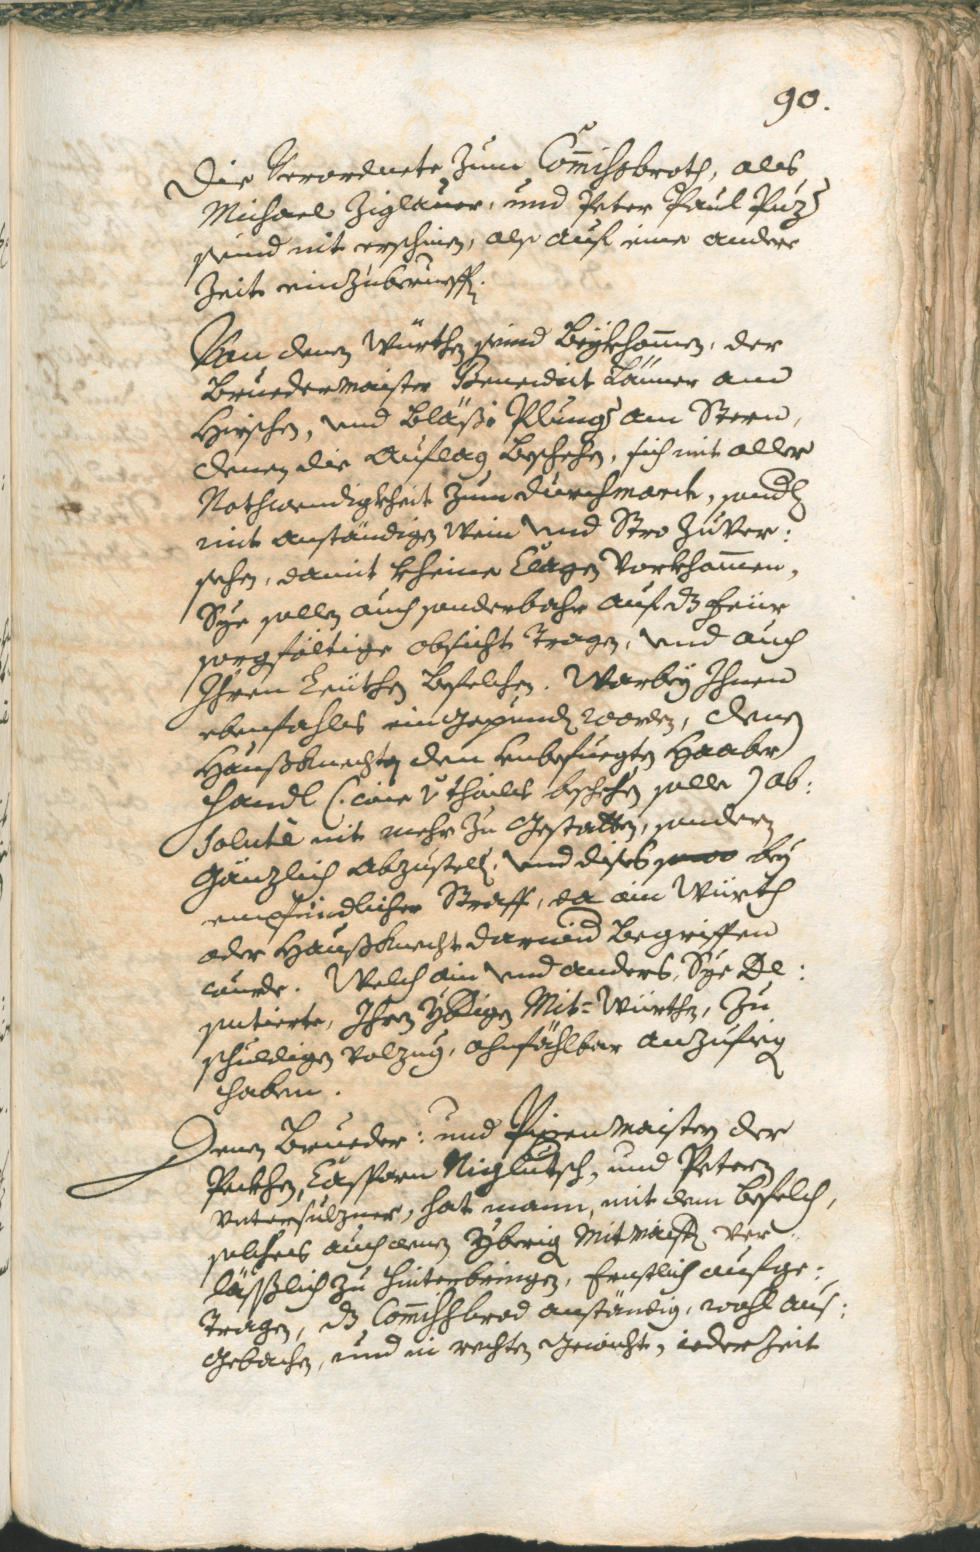 90.
Die Verordnete zum Com̄ißbroth, als
Michael Ziglauer, und Peter Paul Puz
seind nit erschinen, also auf eine andere
Zeit einzuberueffen.
Von denen Würthen seind beykhom̄en, der
Bruedermaister Benedict Lanner am
Hirschen, und Bläsi Plungg am Stern,
denen die Auflag beschehen, sich mit aller
Nothwendigkheit zum durchmarch, sonderlich
mit anständigen Wein und Stro zuver:
sehen, damit kheine Clagen vorkhom̄en,
Sye sollen auch sonderbahr auf dz feür
sorgfältige obsicht tragen, und auch
Ihren Leüthen befelchen. Warbey Ihnen
ebenfahls eingepunden worden, denen
Haußknechten den unbefuegten Haaber
handl (: wie v theils beschehen solle) ab:
solutè nit mehr zu gestatten, sondern
gänzlich abzustellen. und dises bey
empfindlicher Straff, da ain Würth
oder Haußknecht darwid begriffen
wurde. Welch ain und anders, Sye De:
putierte, Ihren ybrigen Mit-Würthen, zu
schuldigen volzug, ohnfählbar anzufiegen
haben.
Denen Brueder: und Pixenmaistern der
Pekhen, Casparn Niglutsch, und Petern
Untersulzner, hat mann, mit dem befelch,
solches auch denen yberigen Mitmaistern ver:
läßlich zu hinterbringen, Ernstlich aufge:
tragen, dz Com̄ißbrod anständig, wohl aus:
gebachen, und in rechten gewicht, iederzeit